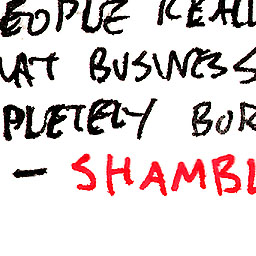 EOPLE REALL
HAT BUSINESS
PLETELY BOR
— SHAMBL